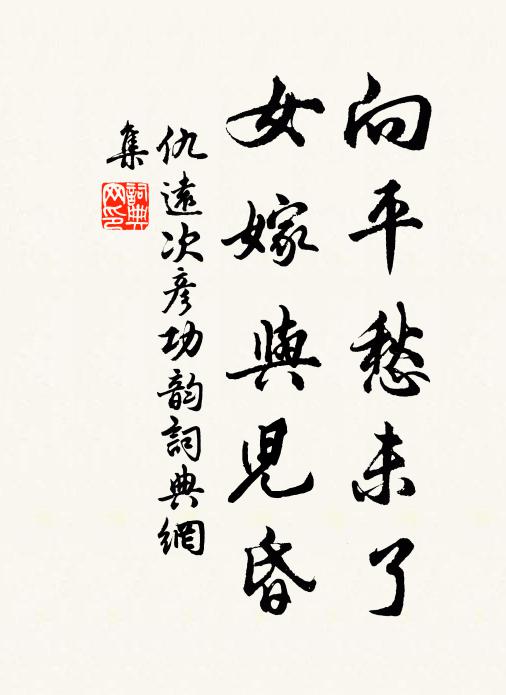 向平愁未了
女嫁與兒昏
仇遠次彥功韵詞典網
集
詞典網印